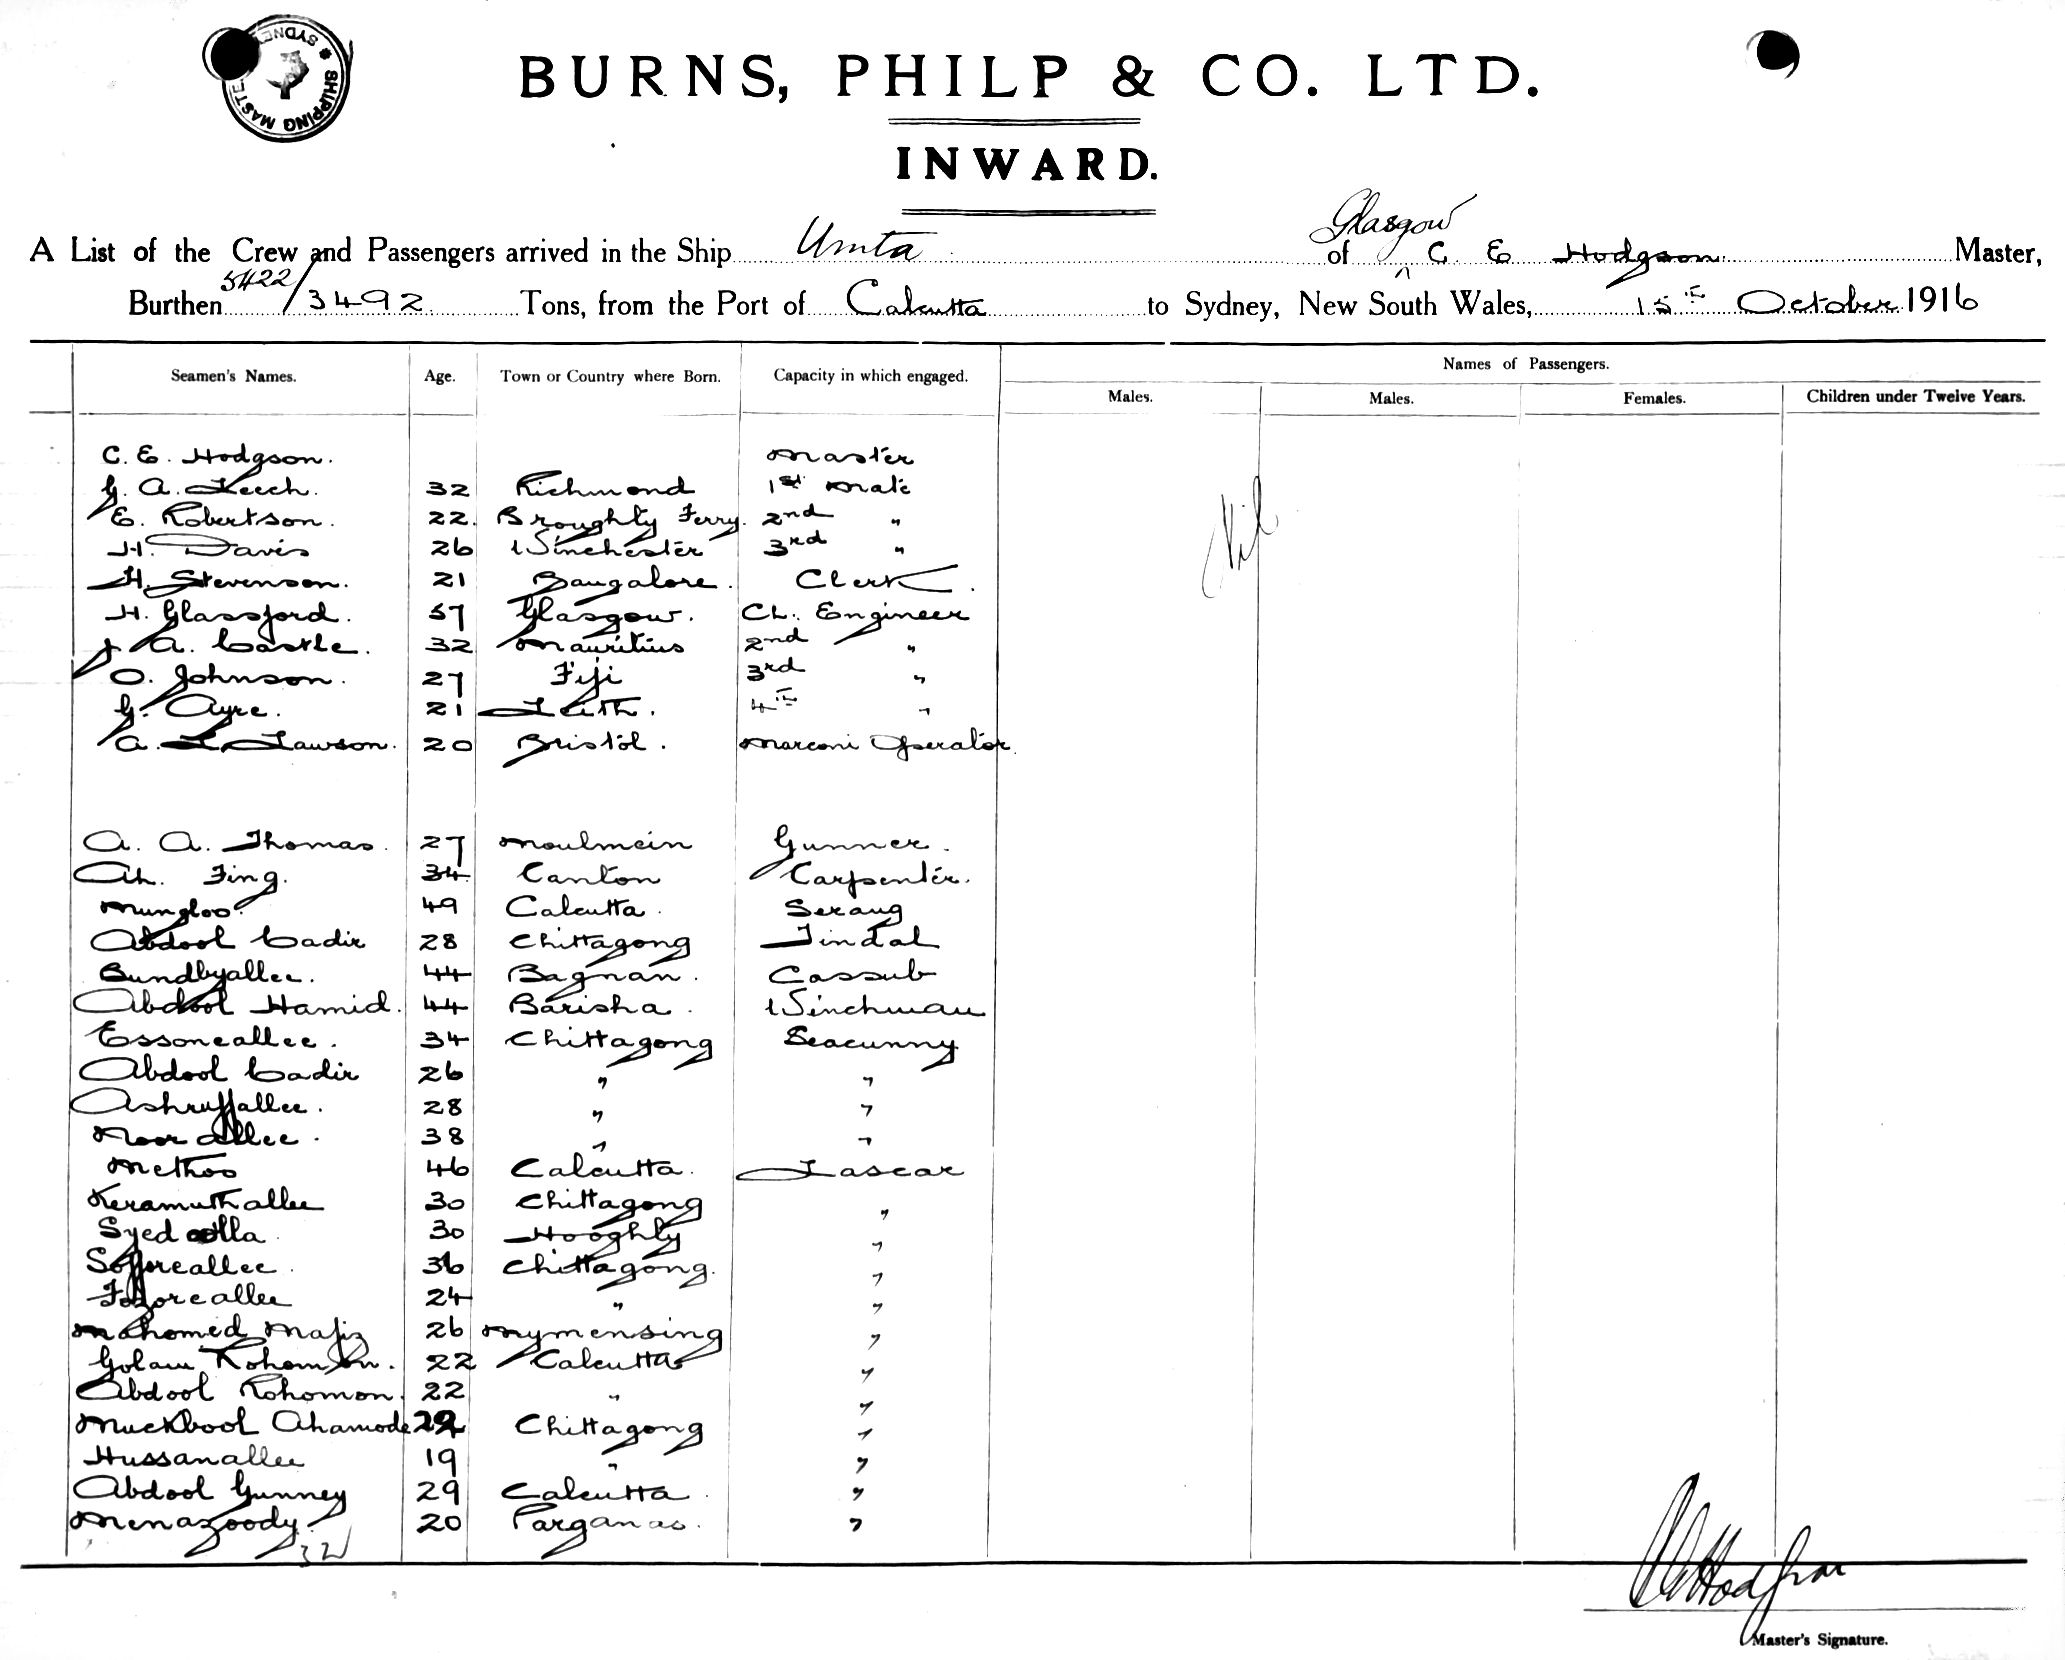 SHIPPING MASTE
SYDNEY
BURNS, PHILP & CO. LTD.
INWARD.
Glasgow
A List of the Crew and Passengers arrived in the Ship Umta of ^ C. E Hodgson Master,
Burthen 5422/3492 Tons, from the Port of Calcutta to Sydney, New South Wales, 15th October 1916
Names of Passengers.
Seamen's Names. Age. Town or Country where Born. Capacity in which engaged. Males. Males. Females. Children under Twelve Years.
C. E. Hodgson. Master
G. A. Leech. 32 Richmond 1st Mate
E. Robertson. 22. Broughty Ferry. 2nd "
H. Davis 26 Winchester 3rd "
Nil
H. Stevenson. 21 Bangalore. Clerk.
H. Glassford. 57 Glasgow. Ch. Engineer
J. A. Castle. 32 Mauritius 2nd "
O. Johnson. 27 Fiji 3rd "
G. Ayre. 21 Leith. 4th "
A. L. Lawson. 20 Bristol. Marconi Operator.
A. A. Thomas. 27 Moulmein Gunner.
Ah. Fing. 34 Canton Carpenter.
Mungloo. 49 Calcutta. Serang
Abdool Cadir 28 Chittagong Tindal
Bundbyallee. 44 Bagnan. Cassub
Abdool Hamid. 44 Barisha. Winchman
Essoneallee. 34 Chittagong Seacunny
Abdool Cadir 26 " "
Ashruffallee. 28 " "
Noor allee. 38 " "
Methoo 46 Calcutta. Lascar
Keramuthallee 30 Chittagong "
Syed olla 30 Hooghly "
Sofforeallee. 36 Chittagong. "
Fozoreallee 24 " "
Mahomed Mafiz 26 Mymensing "
Golam Rohomon. 22 Calcutta "
Abdool Rohomon. 22 " "
Muckbool Ahamode Chittagong "
Hussanallee 19 " "
Abdool Gunney 29 Calcutta. "
Menazoody. 20 Parganas. "
32
C E Hodgson
Master's Signature.